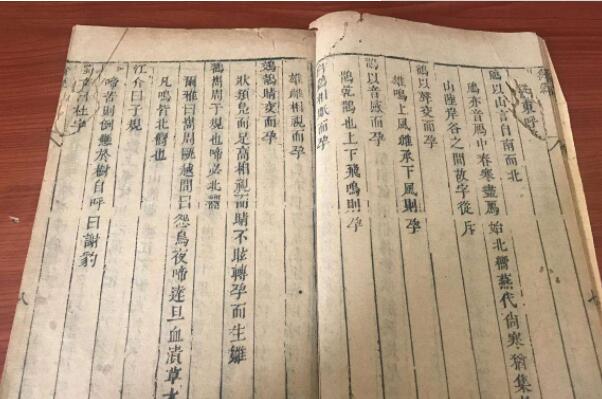 東呼
以山言自南而北
亦音鴈中春寒盡鴈始北嚮燕代尙寒猶集
山陸岸谷之間故字從斥
以聲交而孕
雄鳴上風雌承下風則孕
鵲以音感而孕
鵲乾鵲也上下飛鳴則孕
相眡而孕
雄雌相視而孕
鵁鶄睛交而孕
狀類鳧而足高相視而睛不眩轉孕而生雛
巂周子規也啼必北嚮
爾雅曰巂周甌越間曰怨鳥夜啼達旦血漬草木
凡鳴皆北嚮也
江介曰子規
啼苦則倒懸於樹自呼曰謝豹
蜀右曰杜宇